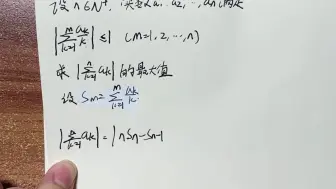 设 n∈N⁺, 实数 a₁, a₂, …, aₙ 满足
|∑_{k=1}^{m} aₖ/k| ≤ 1 (m=1, 2, …, n)
求 |∑_{k=1}^{n} aₖ| 的最大值
设 Sₘ = ∑_{k=1}^{m} aₖ/k
|∑_{k=1}^{n} aₖ| = |nSₙ-Sₙ₋₁